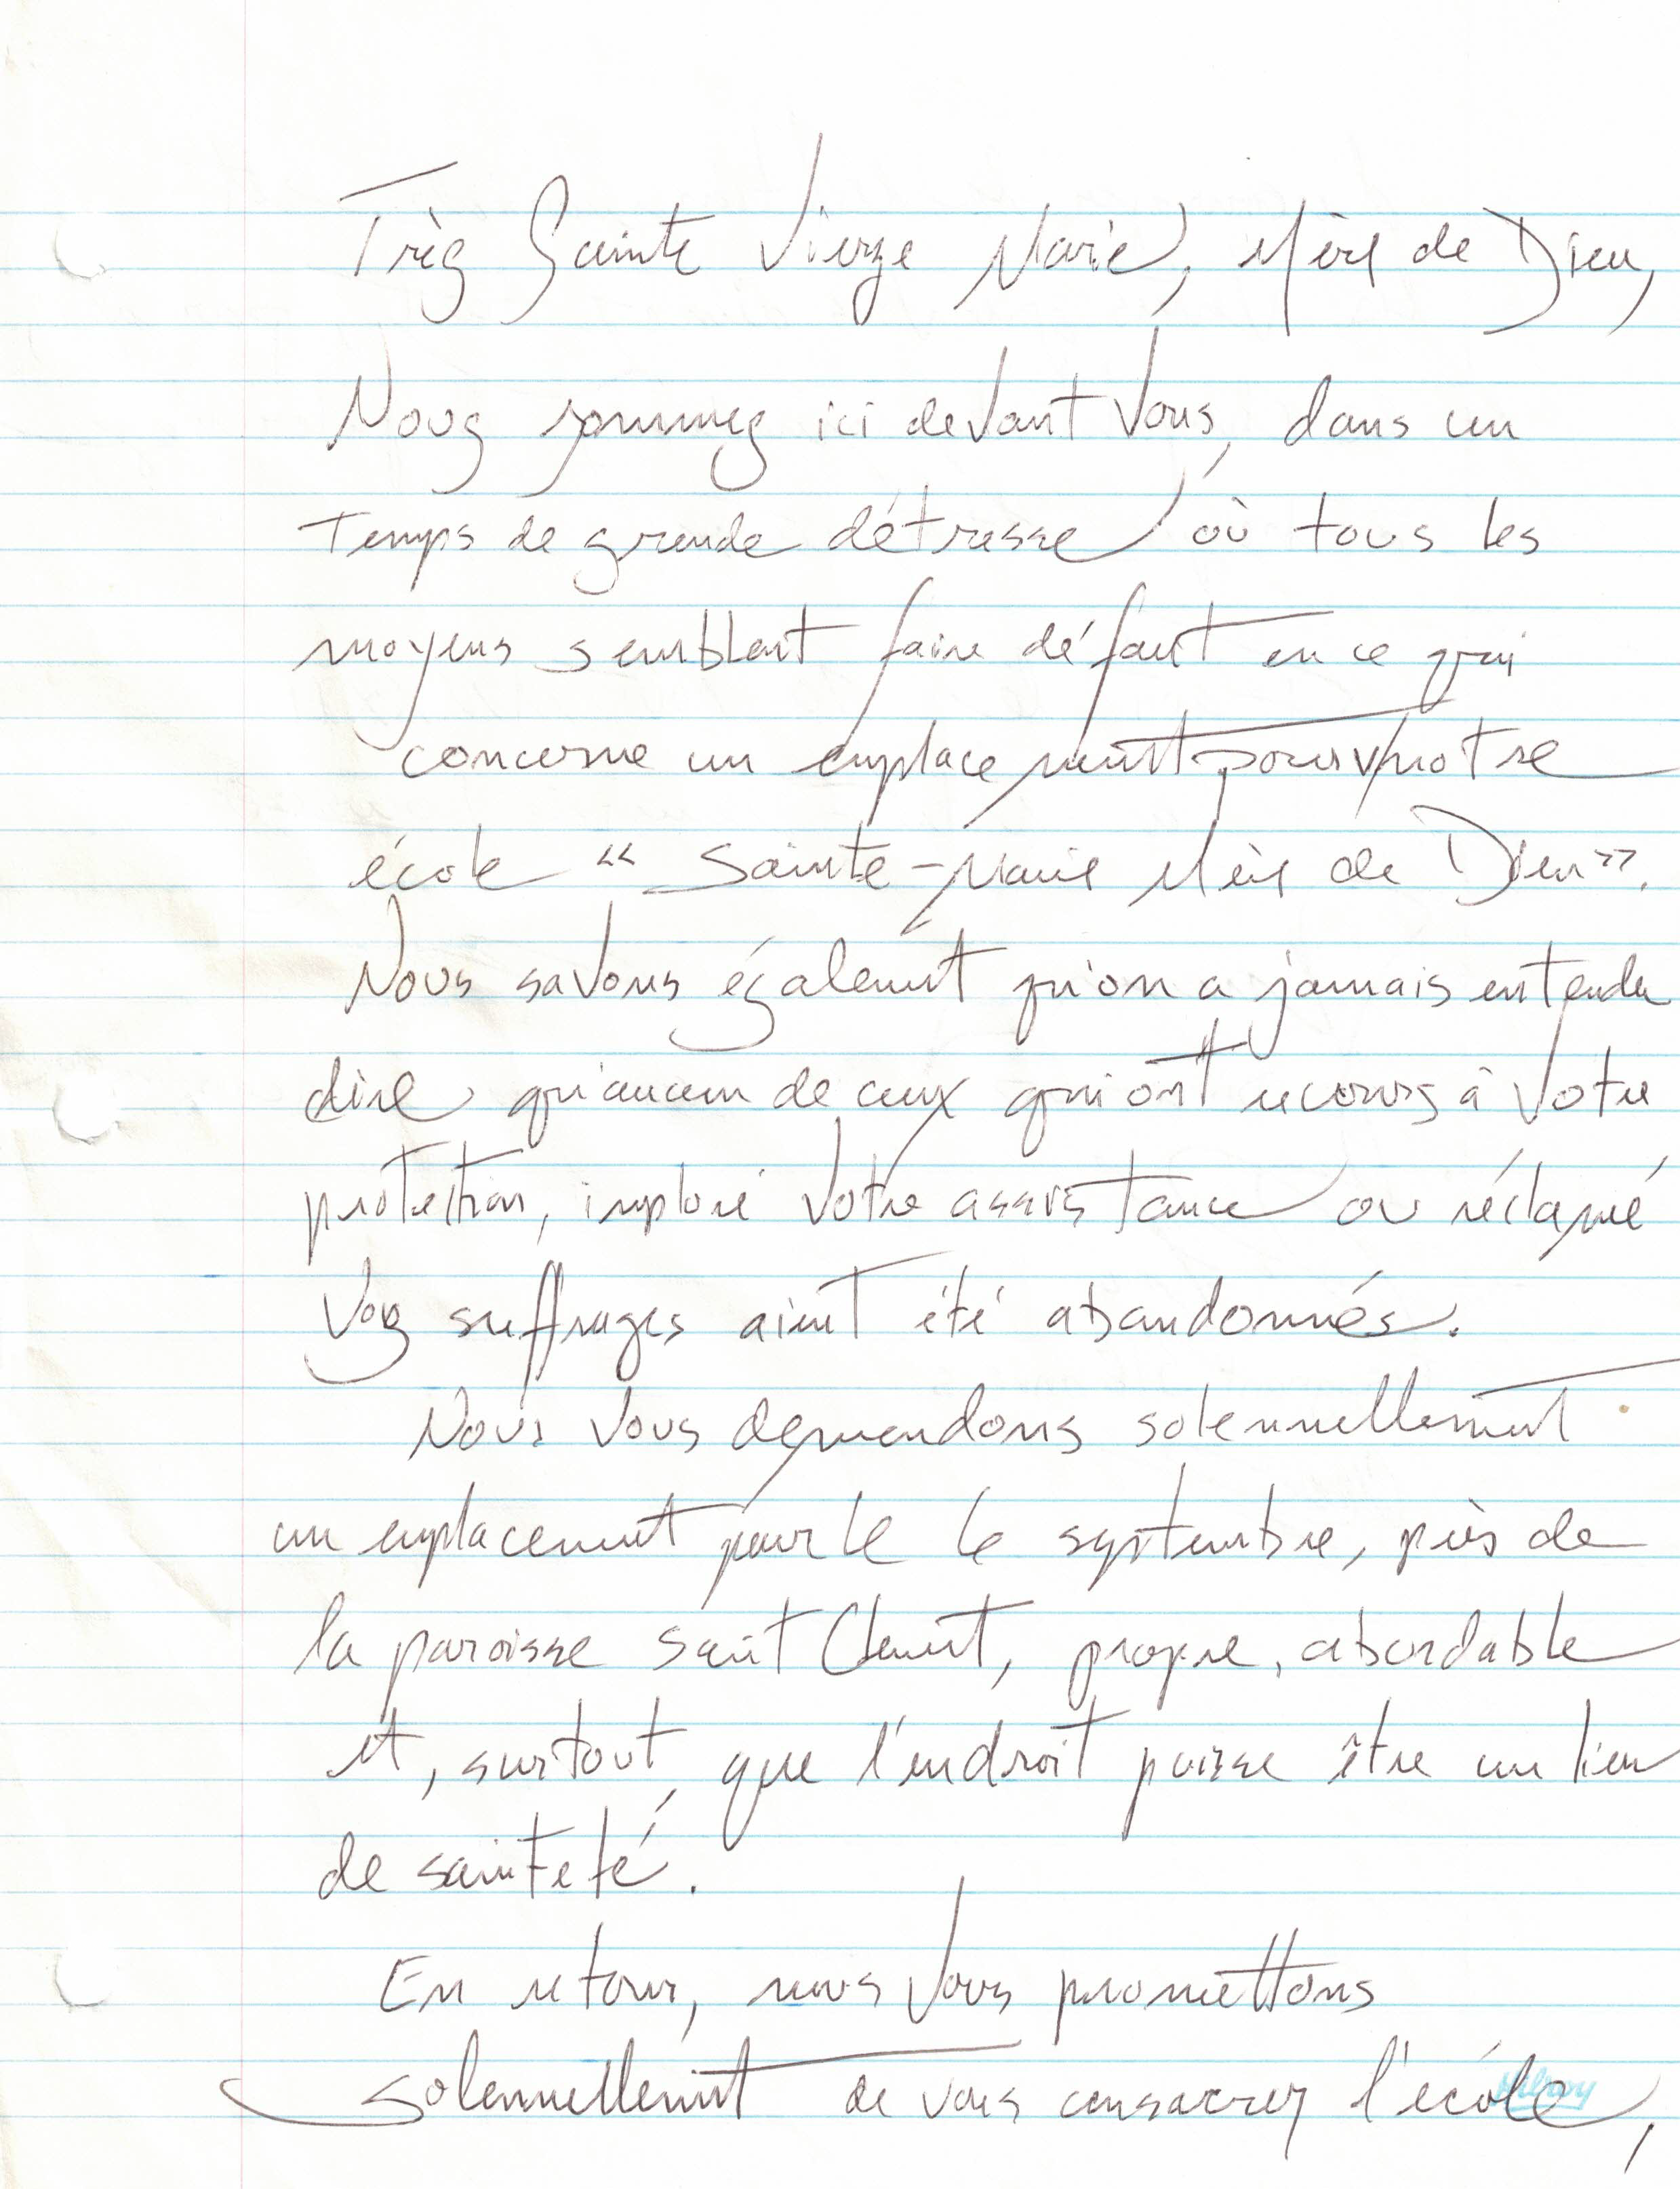 Très Sainte Vierge Marie, Mère de Dieu,
Nous sommes ici devant Vous, dans un
temps de grande détresse où tous les
moyens semblent faire défaut en ce qui
concerne un emplacement pour notre
école « Sainte-Marie Mère de Dieu ».
Nous savons également qu'on a jamais entendu
dire qu'aucun de ceux qui ont recours à Votre
protection, imploré Votre assistance ou réclamé
Vos suffrages aient été abandonnés.
Nous Vous demandons solennellement
un emplacement pour le 6 septembre, près de
la paroisse Saint Clément, propre, abordable
et, surtout, que l'endroit puisse être un lieu
de sainteté.
En retour, nous Vous promettons
solennellement de vous consacrer l'école,
Hilroy